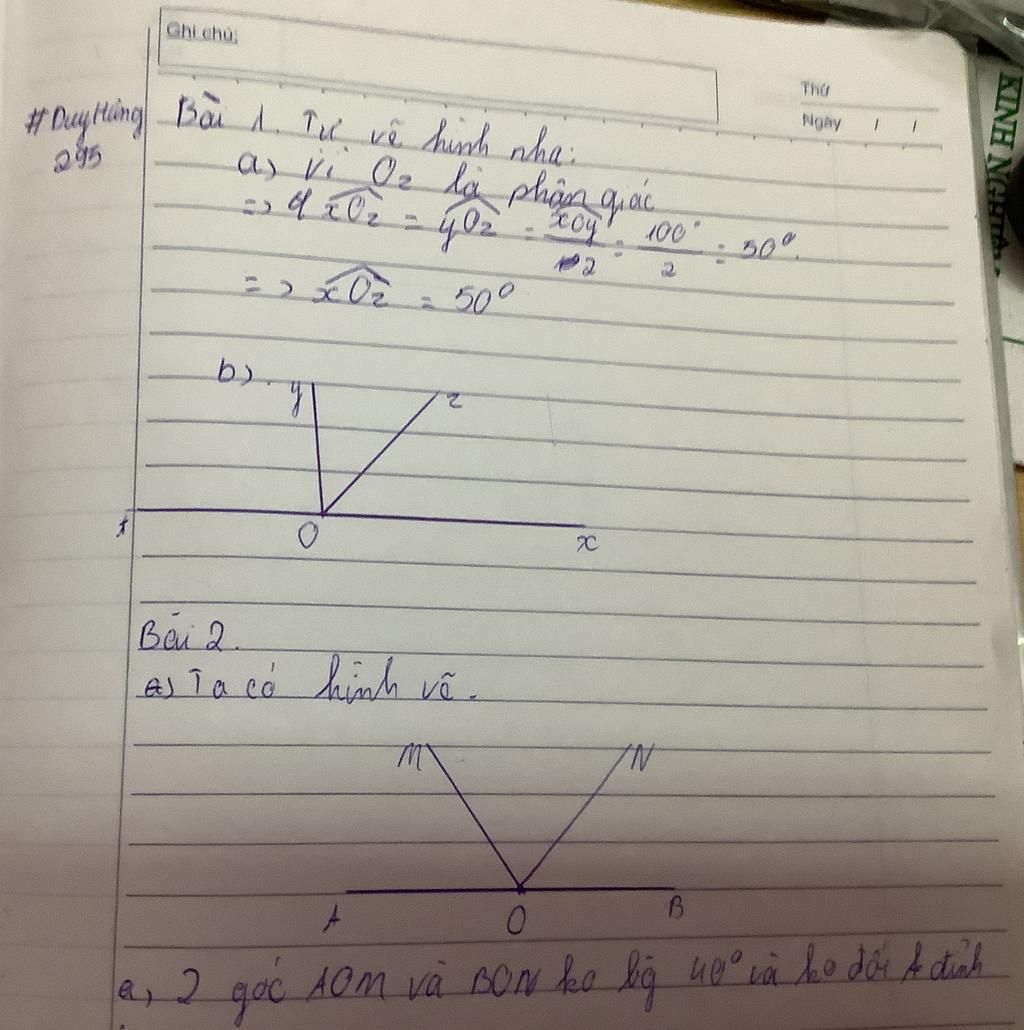 Ghi chú:
Thứ
Ngày / /
#DuyHùng
295
KINH NGHIỆM
Bài 1. Tự vẽ hình nha:
a) Vì Oz là phân giác
=> xOz = yOz = xOy/2 = 100°/2 = 50°.
=> xOz = 50°
b).
y z
O x
Bài 2.
a) Ta có hình vẽ.
M N
A O B
a, 2 góc AOM và BON ko bg 40° và ko đối đỉnh